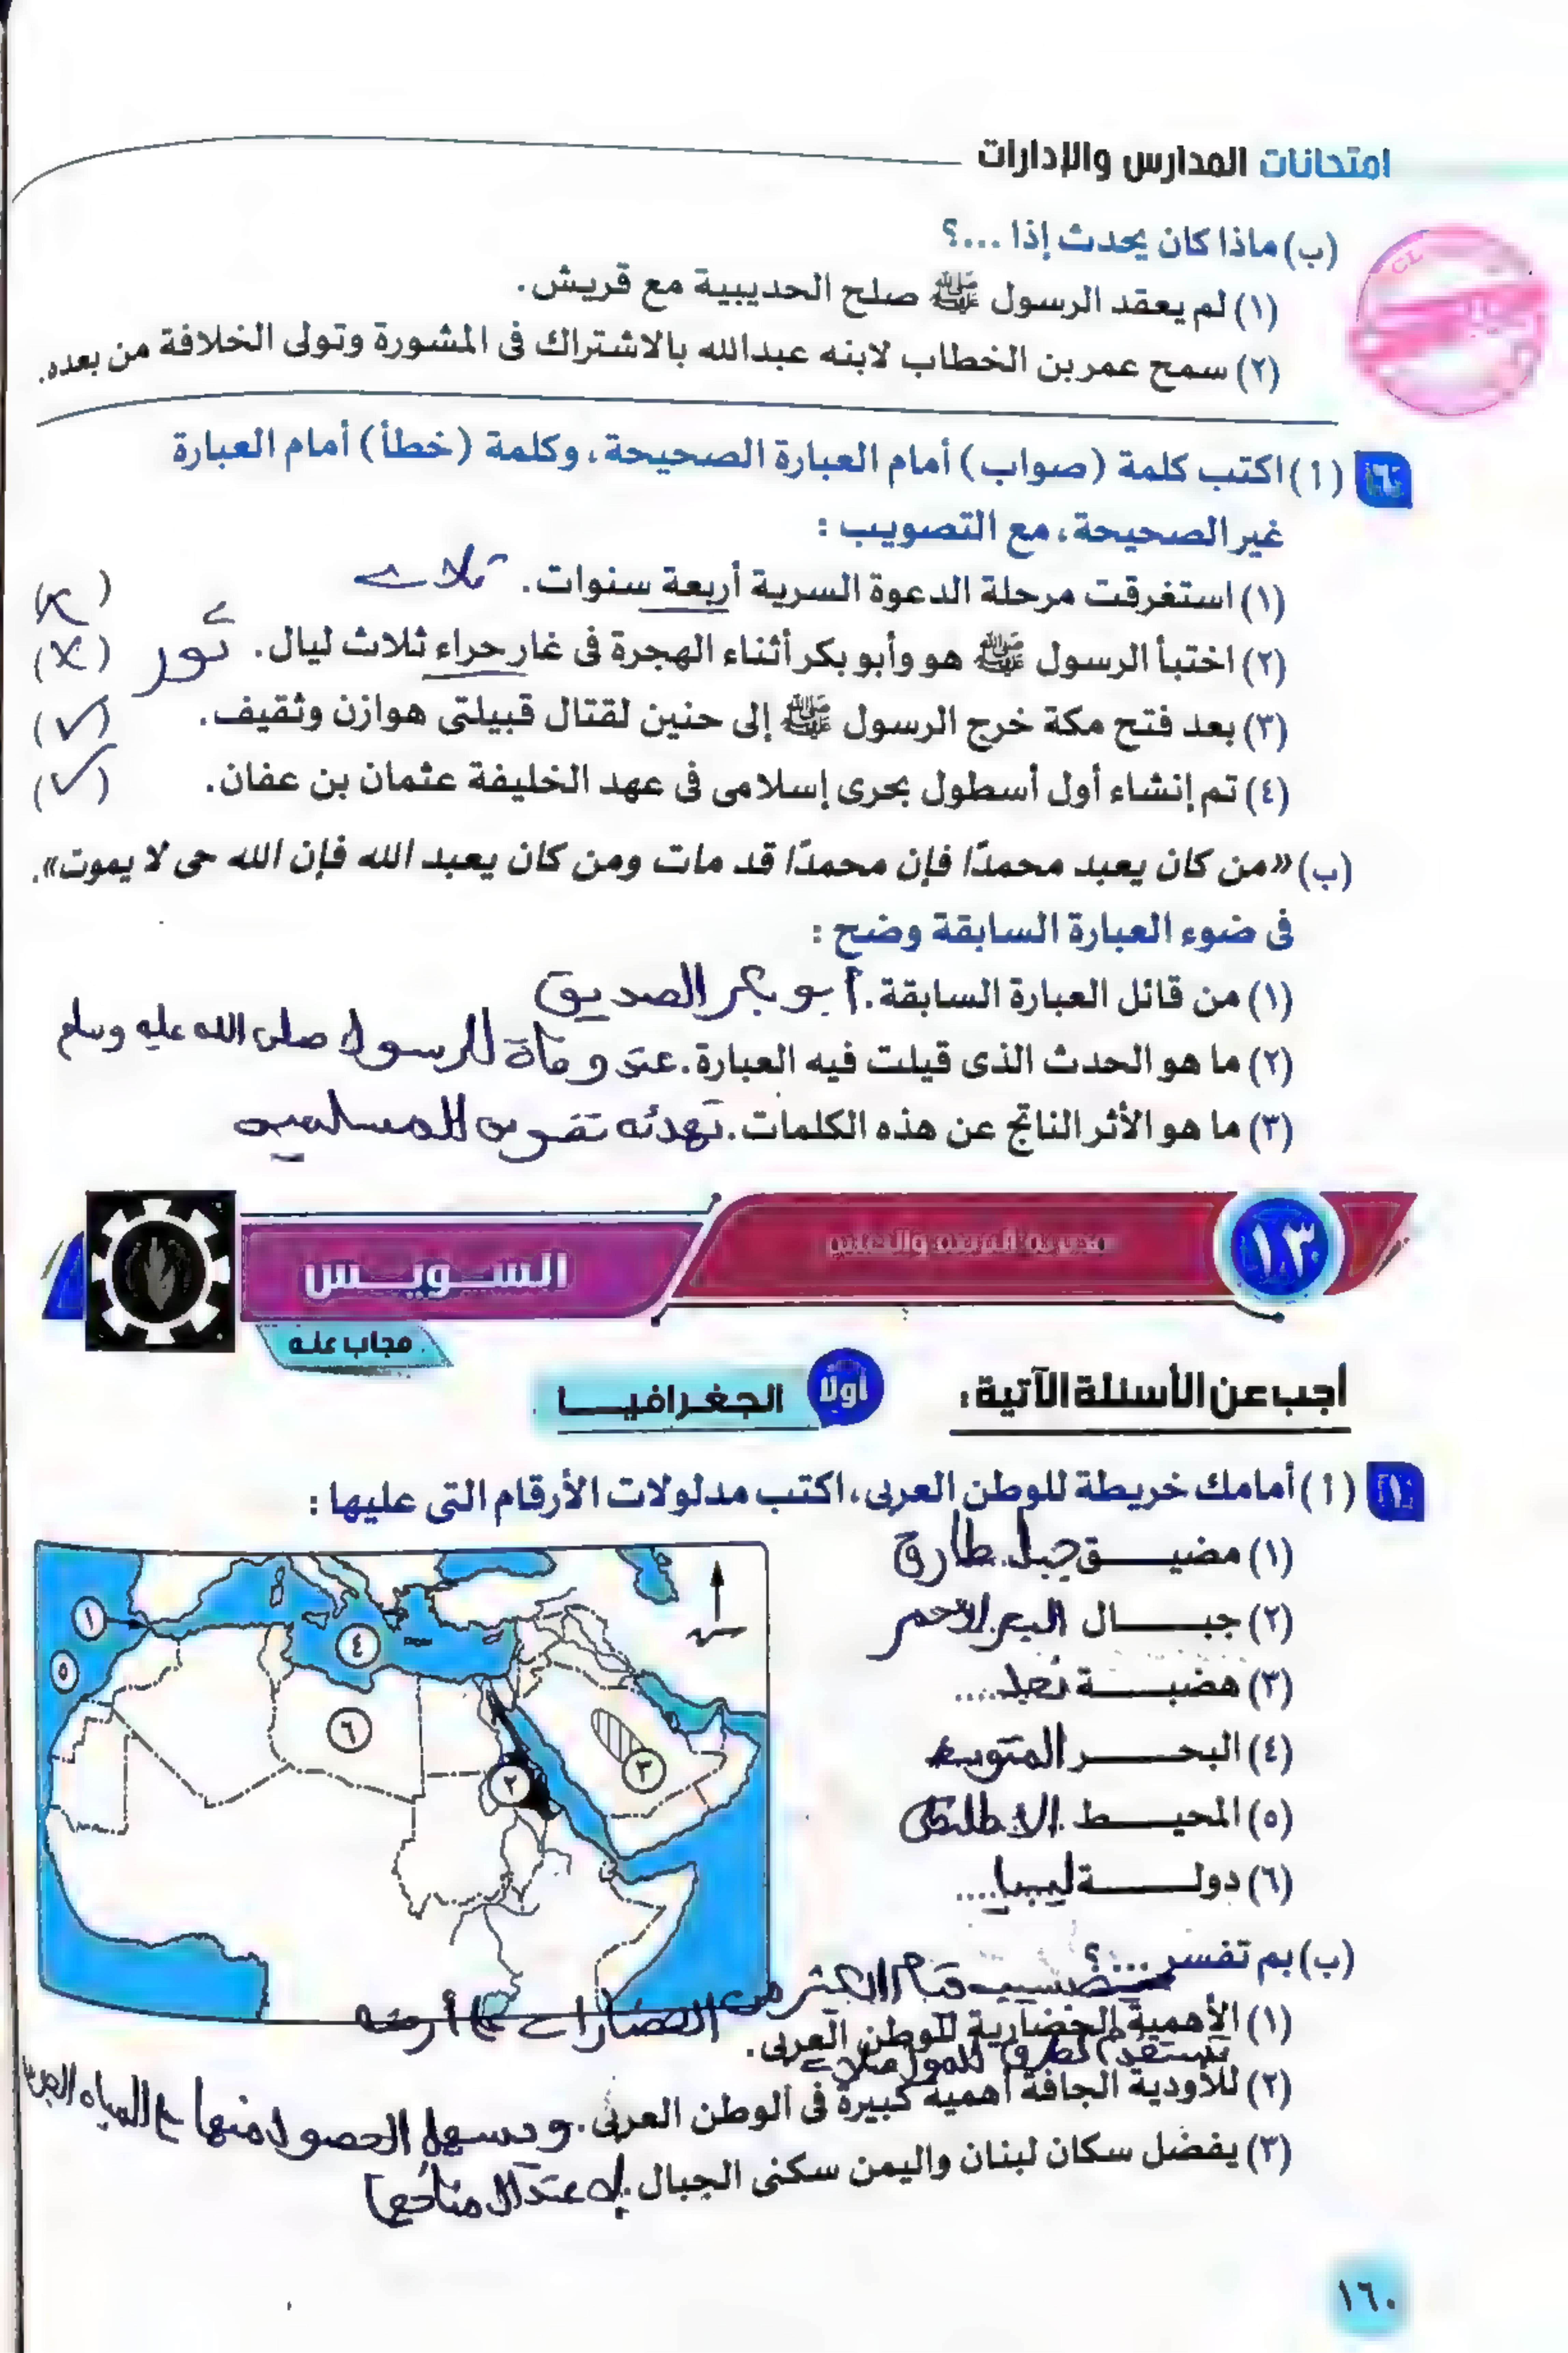 امتحانات المدارس والإدارات
(ب) ماذا كان يحدث إذا ...؟
(١) لم يعقد الرسول ﷺ صلح الحديبية مع قريش.
(٢) سمح عمر بن الخطاب لابنه عبدالله بالاشتراك فى المشورة وتولى الخلافة من بعده.
٦ (أ) اكتب كلمة (صواب) أمام العبارة الصحيحة، وكلمة (خطأ) أمام العبارة
غير الصحيحة، مع التصويب :
(١) استغرقت مرحلة الدعوة السرية أربعة سنوات. ثلاث (×)
(٢) اختبأ الرسول ﷺ هو وأبو بكر أثناء الهجرة فى غار حراء ثلاث ليال. ثور (×)
(٣) بعد فتح مكة خرج الرسول ﷺ إلى حنين لقتال قبيلتى هوازن وثقيف. (✓)
(٤) تم إنشاء أول أسطول بحرى إسلامى فى عهد الخليفة عثمان بن عفان. (✓)
(ب) «من كان يعبد محمدًا فإن محمدًا قد مات ومن كان يعبد الله فإن الله حى لا يموت».
فى ضوء العبارة السابقة وضح :
(١) من قائل العبارة السابقة. أبو بكر الصديق
(٢) ما هو الحدث الذى قيلت فيه العبارة. عند وفاة الرسول صلى الله عليه وسلم
(٣) ما هو الأثر الناتج عن هذه الكلمات. تهدئه نفوس المسلمين
١٣ السويس
مجاب عنه
أجب عن الأسئلة الآتية :
أولا الجغرافيا
١ (أ) أمامك خريطة للوطن العربى، اكتب مدلولات الأرقام التى عليها :
(١) مضيق جبل طارق
(٢) جبال البحر الاحمر
(٣) هضبة نجد ....
(٤) البحر المتوسط
(٥) المحيط الاطلنطى
(٦) دولة ليبيا ....
١
٤
٥
٦
٢
٣
(ب) بم تفسر ...؟
بسبب قيام الكثير من الحضارات على أرضه
(١) الأهمية الحضارية للوطن العربى.
تستخدم كطرق للمواصلات
(٢) للأودية الجافة أهمية كبيرة فى الوطن العربى. ويسهل الحصول منها على المياه
(٣) يفضل سكان لبنان واليمن سكنى الجبال. لاعتدال مناخها
١٦٠